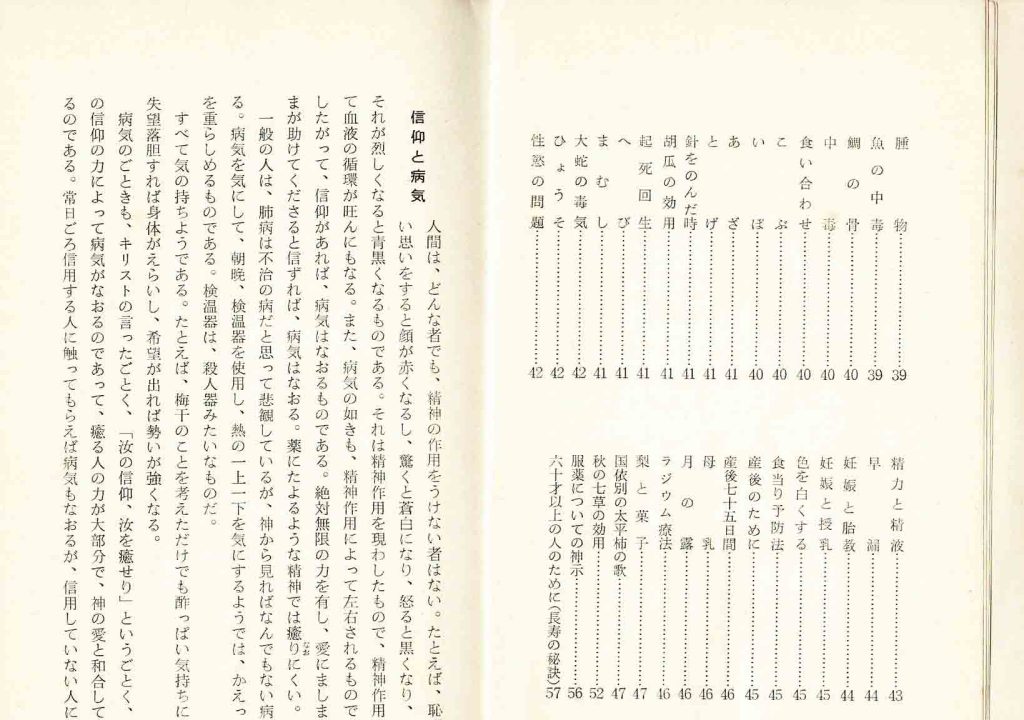 腫物…………39
魚の中毒…………39
鯛の骨…………40
中毒…………40
食い合わせ…………40
こぶ…………40
いぼ…………40
あざ…………41
とげ…………41
針をのんだ時…………41
胡瓜の効用…………41
起死回生…………41
へび…………41
まむし…………41
大蛇の毒気…………42
ひょうそ…………42
性慾の問題…………42
精力と精液…………43
早漏…………44
妊娠と胎教…………44
妊娠と授乳…………45
色を白くする…………45
食当り予防法…………45
産後のために…………45
産後七十五日間…………46
母乳…………46
月の露…………46
ラジウム療法…………46
梨と菓子…………47
国依別の太平柿の歌…………47
秋の七草の効用…………52
服薬についての神示…………56
六十才以上の人のために(長寿の秘訣)57
信仰と病気
人間は、どんな者でも、精神の作用をうけない者はない。たとえば、恥
い思いをすると顔が赤くなるし、驚くと蒼白になり、怒ると黒くなり、
それが烈しくなると青黒くなるものである。それは精神作用を現わしたもので、精神作用
て血液の循環が旺んにもなる。また、病気の如きも、精神作用によって左右されるもので
したがって、信仰があれば、病気はなおるものである。絶対無限の力を有し、愛にましま
まが助けてくださると信ずれば、病気はなおる。薬にたよるような精神では癒りにくい。
一般の人は、肺病は不治の病だと思って悲観しているが、神から見ればなんでもない病
る。病気を気にして、朝晩、検温器を使用し、熱の一上一下を気にするようでは、かえっ
を重らしめるものである。検温器は、殺人器みたいなものだ。
すべて気の持ちようである。たとえば、梅干のことを考えただけでも酢っぱい気持ちに
失望落胆すれば身体がえらいし、希望が出れば勢いが強くなる。
病気のごときも、キリストの言ったごとく、「汝の信仰、汝を癒せり」というごとく、
の信仰の力によって病気がなおるのであって、癒る人の力が大部分で、神の愛と和合して
るのである。常日ごろ信用する人に触ってもらえば病気もなおるが、信用していない人に